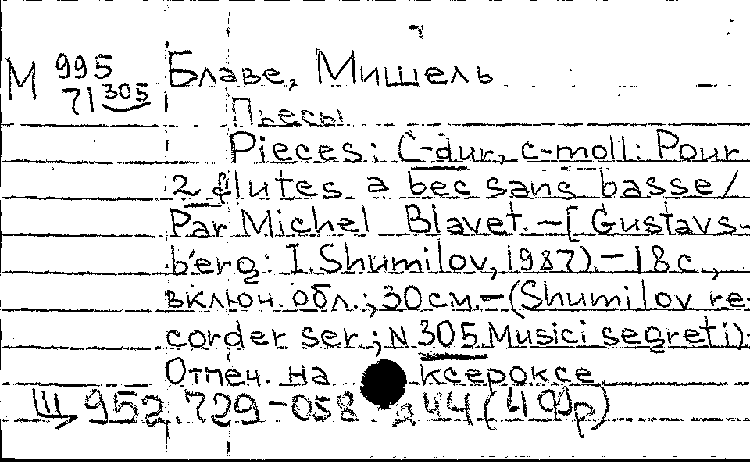 М 995 Блаве, Мишель
71 305
Пьесы
Pieces: C-dur, c-moll: Pour
2 flutes a bec sans basse /
Par Michel Blavet. - [Gustavs-
berg: I. Shumilov, 1987). - 18 с.,
включ. обл.; 30 см. - (Shumilov re-
corder ser.; N 305. Musici segreti).
Отпеч. на ксероксе
Ш 952.729-058 244 (499р)